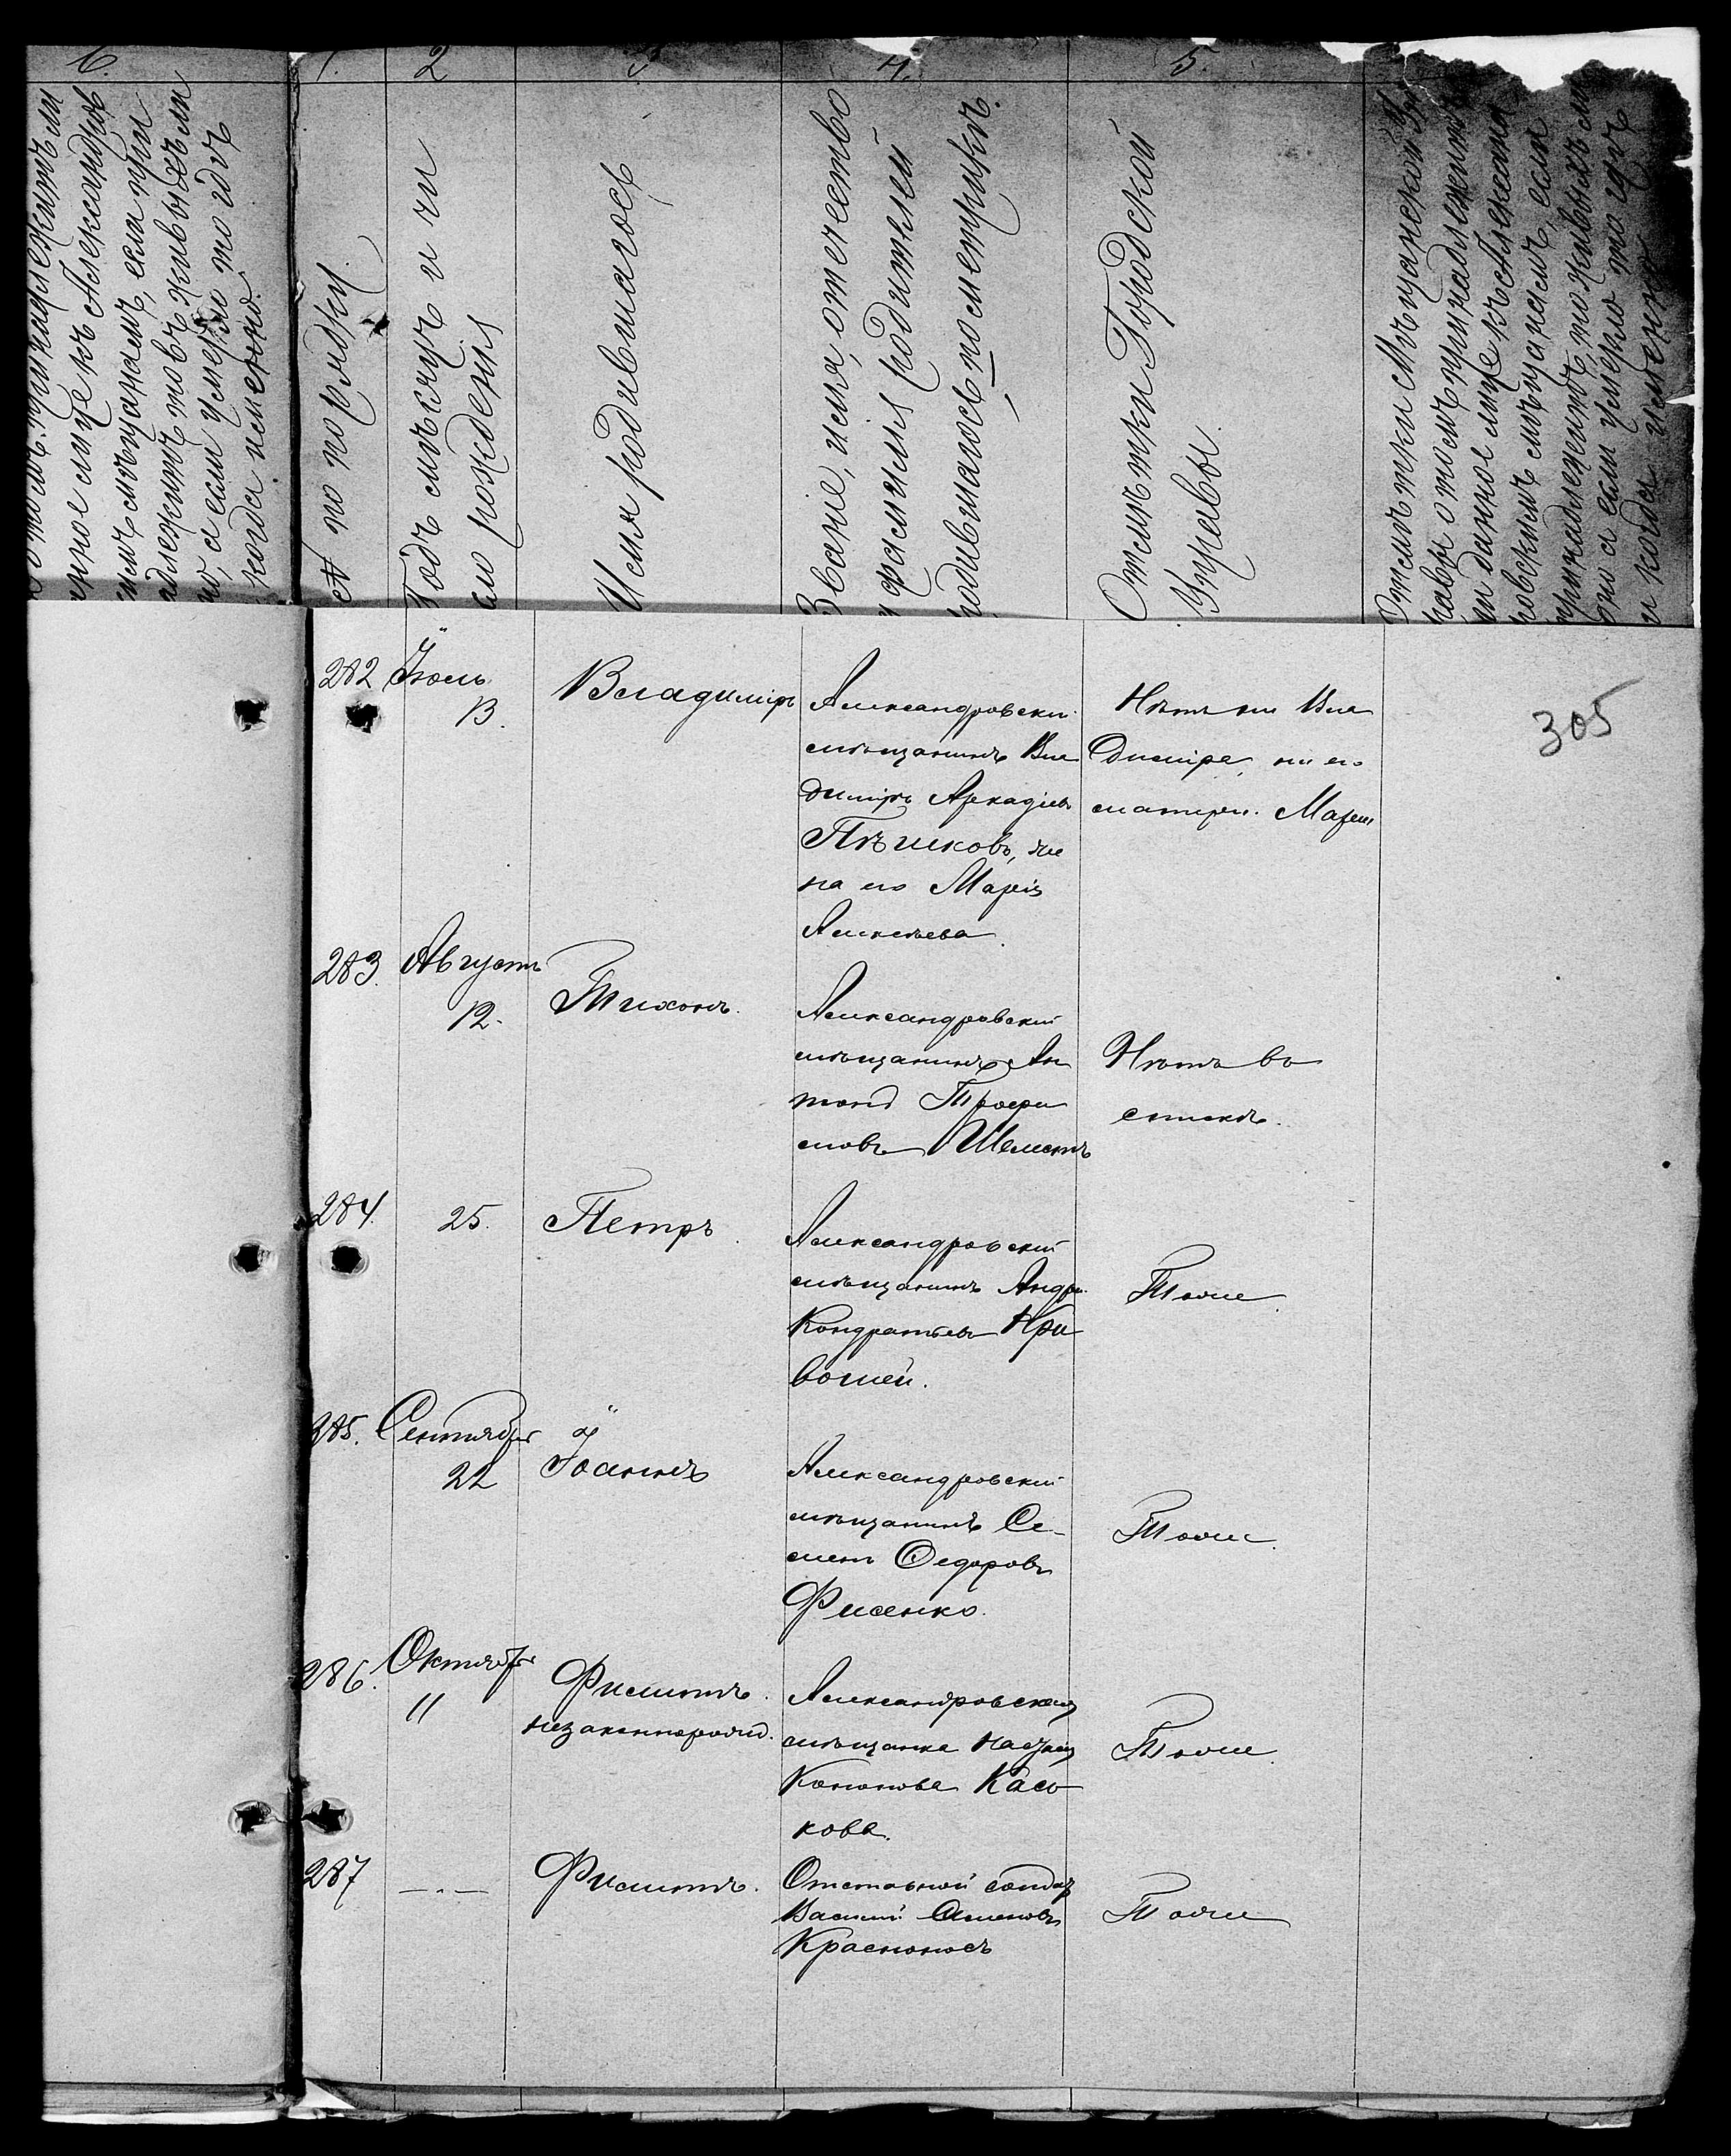 6.
о томъ, принадлежитъ ли
лице къ Александров
мъщанамъ, если при
надлежитъ то въ живыхъ ли
а если умерло то гдѣ
когда именно.
1.
2
3
4.
5.
№ по порядку.
Годъ мѣсяцъ и чи
сло рожденія
Имя родившагося
Званіе, имя, отечество
и фамилія родителей
родившагося по метрикѣ.
Отмѣтки Городской
Управы.
Отмѣтки Мѣщанской Уп
равы о томъ принадлежитъ
ли данное лице къ Александ
ровскимъ мѣщанамъ, если
принадлежитъ, то живыхъ ли
оно а если умерло то гдѣ
и когда именно.
305
282 Іюль
13.
Владиміръ
Александровскій
мѣщанинъ Вла
диміръ Аркадіев
Пѣшковъ, же
на его Марія
Алексѣева.
Нѣтъ ни Вла
диміра, ни его
матери Маріи
283. Августъ
12.
Тихонъ.
Александровскій
мѣщанинъ Ан
тонъ Трофи
мовъ Шелестъ
Нѣтъ въ
спискѣ.
284.
25.
Петръ.
Александровскій
мѣщанинъ Андре
Кондратьевъ Кри
вошей.
Тоже.
285. Сентября
22
Іоаннъ
Александровскій
мѣщанинъ Се-
менъ Федоровъ
Фисенко.
Тоже.
286. Октября
11
Филиппъ.
незаконнорожд.
Александровская
мѣщанка
Кононова Кась
кова.
Тоже.
287
—〃—
Филиппъ.
Отставной солдат
Василій Семеновъ
Красноносъ
Тоже